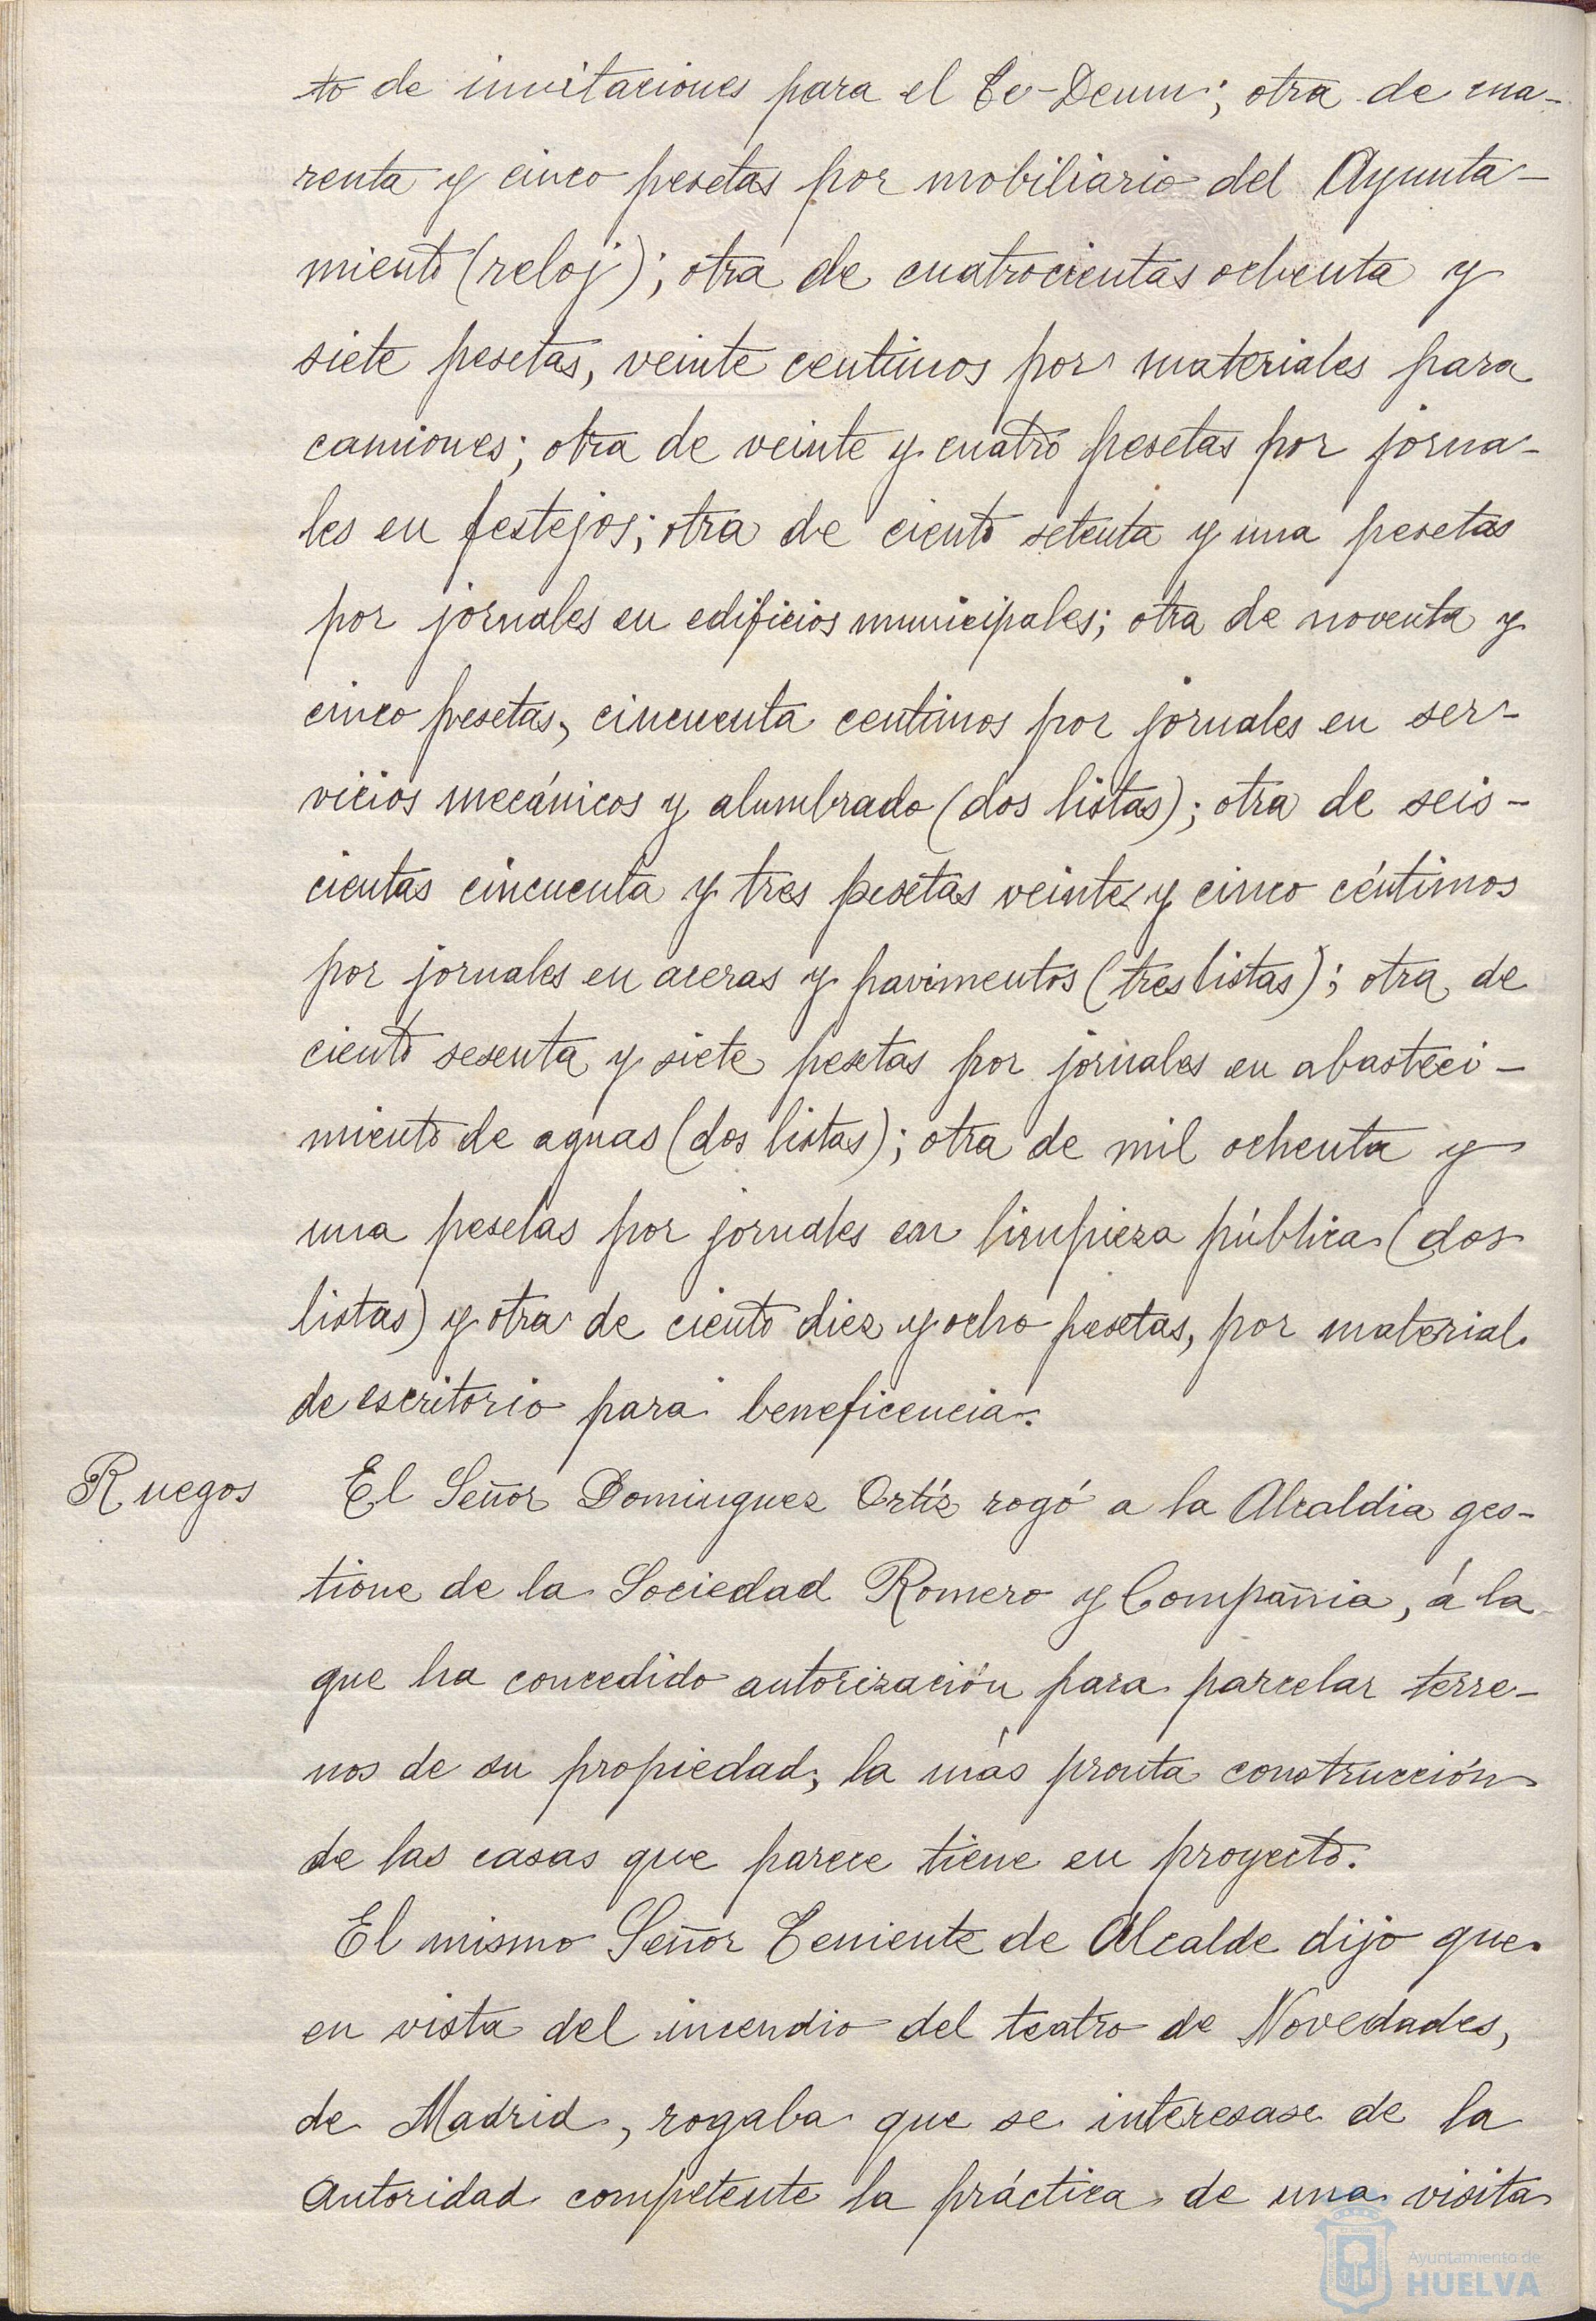 to de invitaciones para el Te-Deum; otra de cua-
renta y cinco pesetas por mobiliario del Ayunta-
miento (reloj); otra de cuatrocientas ochenta y
siete pesetas, veinte centimos por materiales para
camiones; otra de veinte y cuatro pesetas por jorna-
les en festejos; otra de ciento setenta y una pesetas
por jornales en edificios municipales; otra de noventa y
cinco pesetas, cincuenta centimos por jornales en ser-
vicios mecánicos y alumbrado (dos listas); otra de seis-
cientas cincuenta y tres pesetas veinte y cinco céntimos
por jornales en aceras y pavimentos (tres listas); otra de
ciento sesenta y siete pesetas por jornales en abasteci-
miento de aguas (dos listas); otra de mil ochenta y
una pesetas por jornales en limpieza pública (dos
listas) y otra de ciento diez y ocho pesetas, por material
de escritorio para beneficencia.
Ruegos El Señor Dominguez Ortíz rogó a la Alcaldia ges-
tione de la Sociedad Romero y Compañia, á la
que ha concedido autorización para parcelar terre-
nos de su propiedad, la más pronta construcción
de las casas que parece tiene en proyecto.
El mismo Señor Teniente de Alcalde dijo que
en vista del incendio del teatro de Novedades,
de Madrid, rogaba que se interesase de la
Autoridad competente la práctica de una visita
Ayuntamiento de
HUELVA